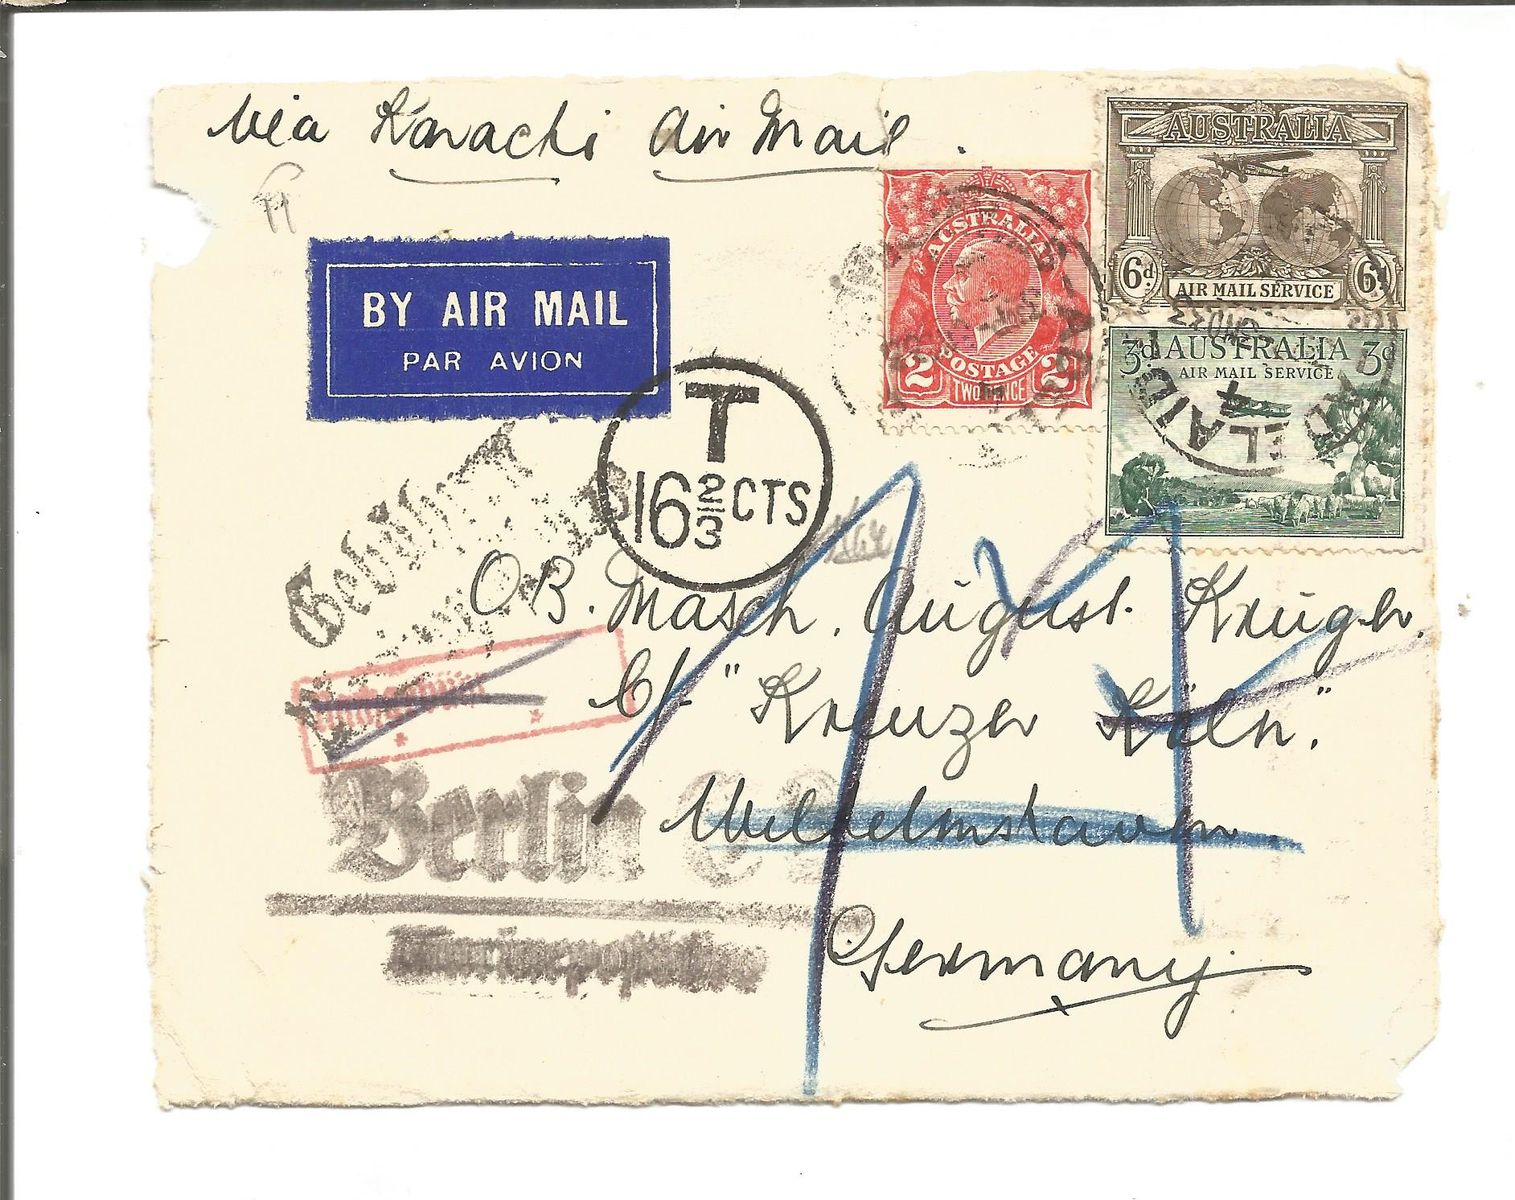 Via Karachi Air Mail.
AUSTRALIA
6d 6d
AIR MAIL SERVICE
AUSTRALIA
POSTAGE
2 TWO PENCE 2
3d AUSTRALIA 3d
AIR MAIL SERVICE
ADELAIDE
BY AIR MAIL
PAR AVION
T
16 2/3 CTS
OB. Masch. August Krüger.
"Kreuzer Köln".
Wilhelmshaven.
Germany
Berlin C 2
Marinepostbüro